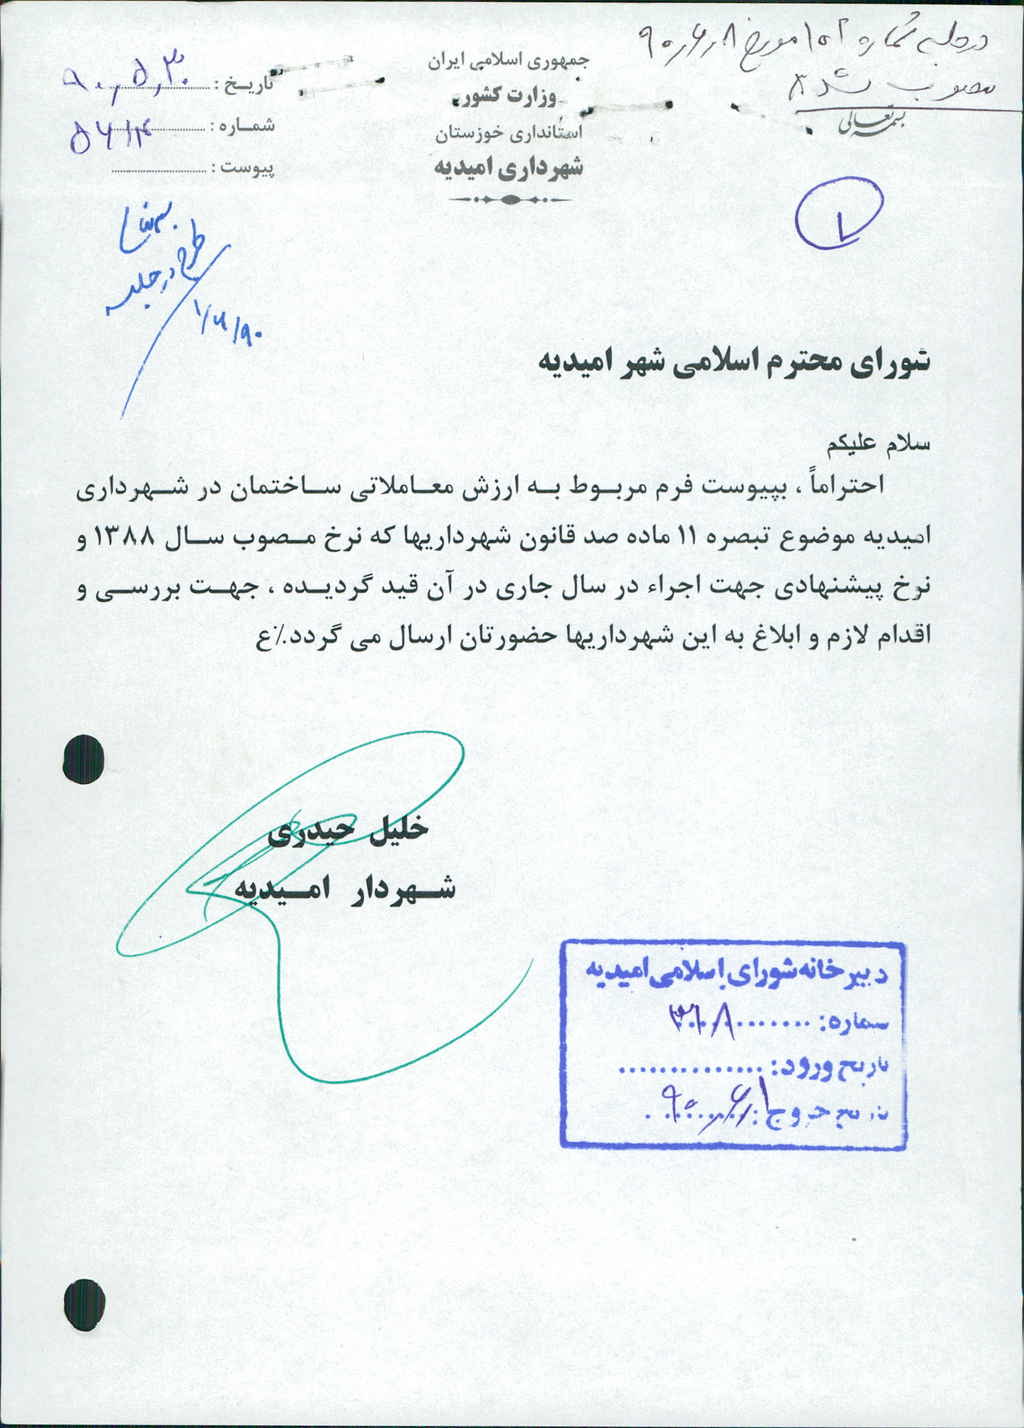 در جلسه شماره ۱۰۲ مورخ ۹۰/۶/۸
مصوب شد
بسمه تعالی
جمهوری اسلامی ایران
وزارت کشور
استانداری خوزستان
شهرداری امیدیه
تاریخ : ۹۰,۵,۳۰
شماره : ۵۶۱۴
پیوست :
طرح در جلسه
۹۰/۶/۱
شورای محترم اسلامی شهر امیدیه
سلام علیکم
احتراماً ، بپیوست فرم مربوط به ارزش معاملاتی ساختمان در شهرداری
امیدیه موضوع تبصره ۱۱ ماده صد قانون شهرداریها که نرخ مصوب سال ۱۳۸۸ و
نرخ پیشنهادی جهت اجراء در سال جاری در آن قید گردیده ، جهت بررسی و
اقدام لازم و ابلاغ به این شهرداریها حضورتان ارسال می گردد.٪ع
خلیل حیدری
شهردار امیدیه
دبیرخانه شورای اسلامی امیدیه
شماره:
تاریخ ورود:
تاریخ خروج: ۹۰/۶/۱